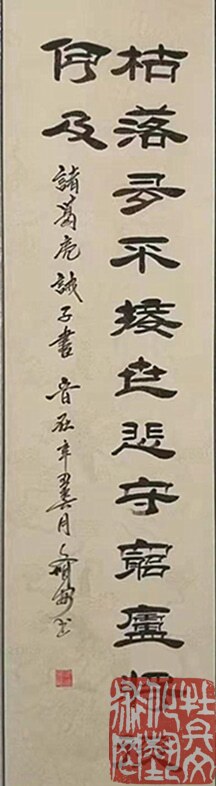 枯落多不接世悲守窮廬將復
何及
諸葛亮誡子書 辛丑 月